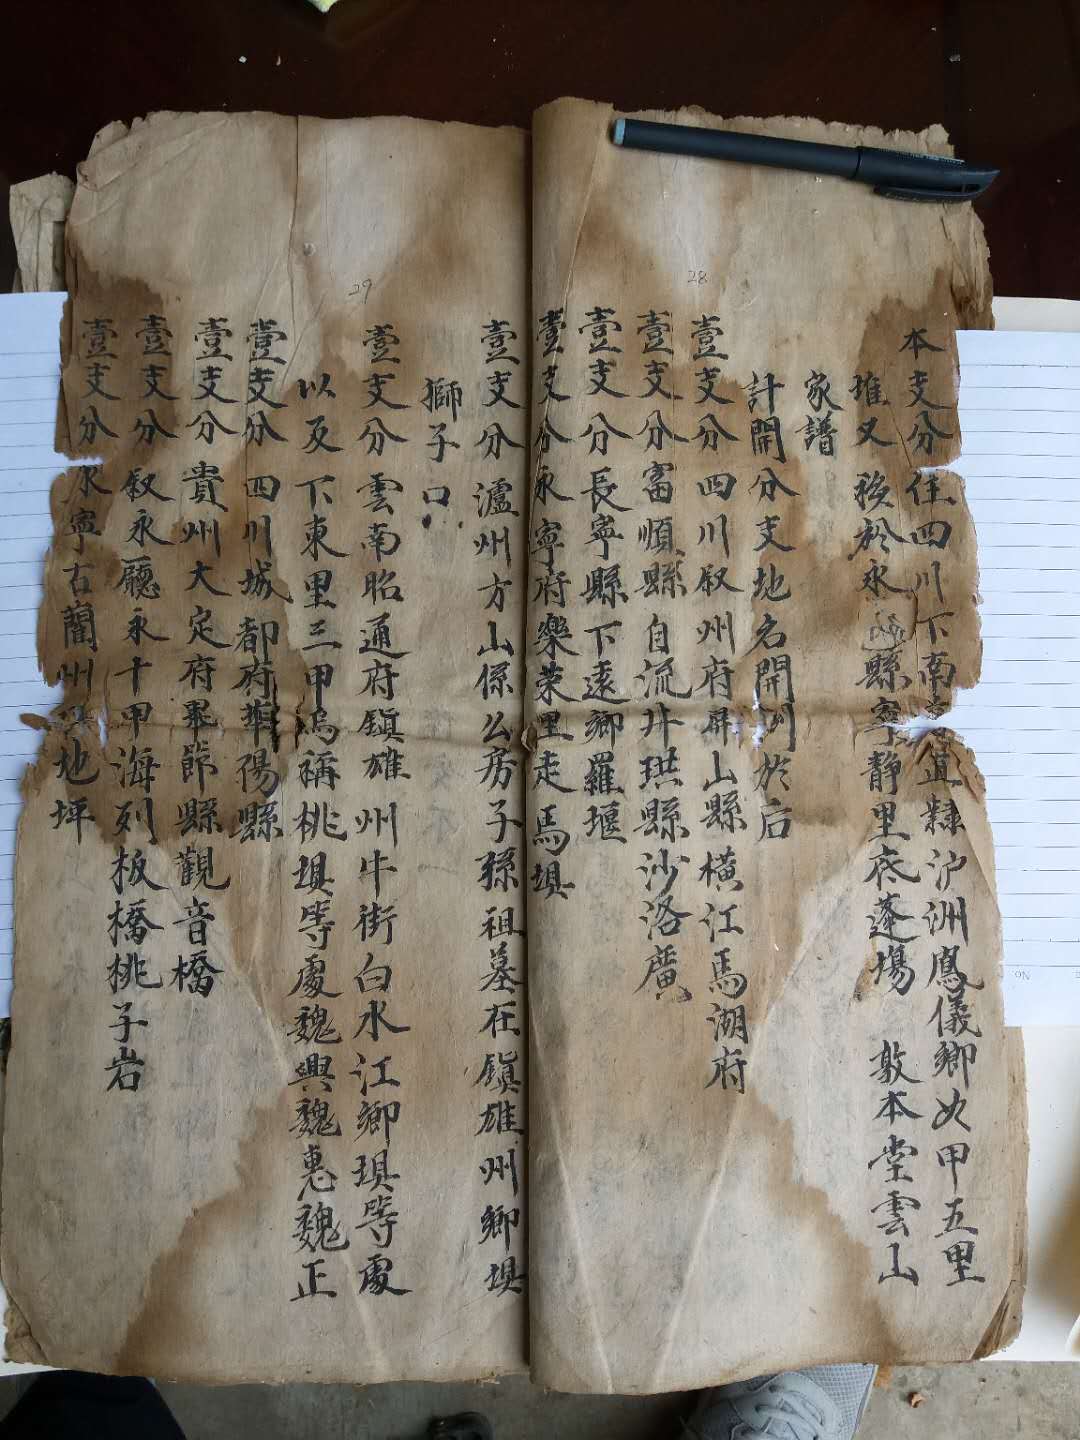 28
本支分住四川下南直隸沪洲鳳儀鄉收甲五里
堆又移於永縣寧靜里底蓬場 敦本堂雲山
家譜
計開分支地名開列於后
壹支分四川叙州府屏山縣橫江馬湖府
壹支分富順縣自流井珙縣沙洛廣
壹支分長寧縣下遠鄉羅堰
壹支分永寧府樂荣里走馬埧
29
壹支分瀘州方山係公房子孫祖墓在鎮雄州鄉埧
獅子口
壹支分雲南昭通府鎮雄州牛街白水江鄉埧等處
以及下東里三甲烏稱桃埧等處魏興魏惠魏正
壹支分四川城都府華陽縣
壹支分貴州大定府畢節縣觀音橋
壹支分叙永廳永十甲海列板橋桃子岩
壹支分永寧古藺州地坪